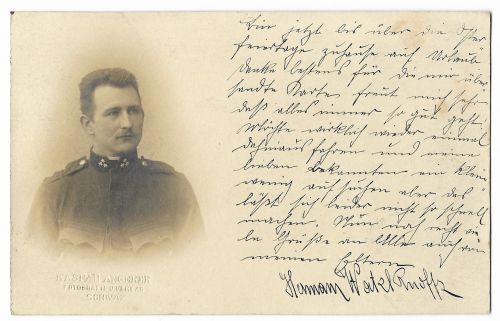 Bin jetzt bis über die Oster
feiertage zuhause auf Urlaub
danke bestens für die mir über
sandte Karte freut mich sehr
daß alles immer so gut geht.
Möchte wirklich wieder einmal
dahinausfahren und meine
lieben Bekannten ein klein
wenig aufsuchen aber das
läßt sich leider nicht so schnell
machen. Nun noch recht vie
le Grüße an Alle auch von
meinen Eltern
KASPAR ANGERER
SCHWAZ